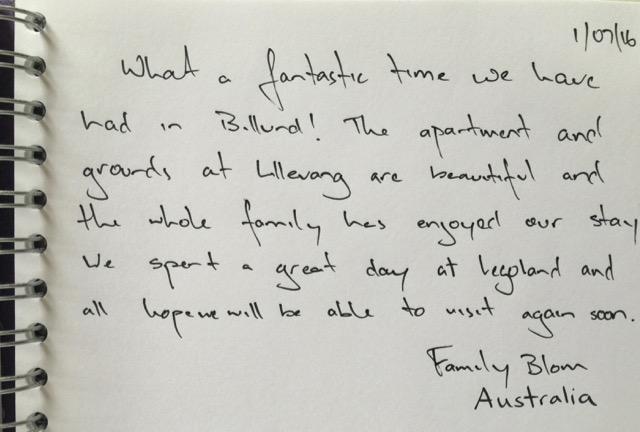 1/07/16
What a fantastic time we have
had in Billund! The apartment and
grounds at Lillevang are beautiful and
the whole family has enjoyed our stay
We spent a great day at Legoland and
all hope we will be able to visit again soon.
Family Blom
Australia